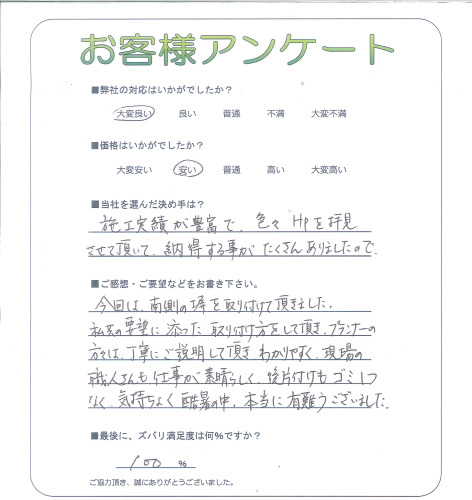 お客様アンケート
■弊社の対応はいかがでしたか？
大変良い 良い 普通 不満 大変不満
■価格はいかがでしたか？
大変安い 安い 普通 高い 大変高い
■当社を選んだ決め手は？
施工実績が豊富で、色々HPを拝見
させて頂いて、納得する事がたくさんありましたので
■ご感想・ご要望などをお書き下さい。
今回は、南側の塀を取り付けて頂きました。
私共の要望に添った取り付け方をして頂き、プランナーの
方々は、丁寧にご説明して頂きわかりやすく、現場の
職人さんも仕事が素晴らしく、後片付けもゴミ1つ
なく、気持ちよく酷暑の中、本当に有難うございました。
■最後に、ズバリ満足度は何%ですか？
100 %
ご協力頂き、誠にありがとうございました。